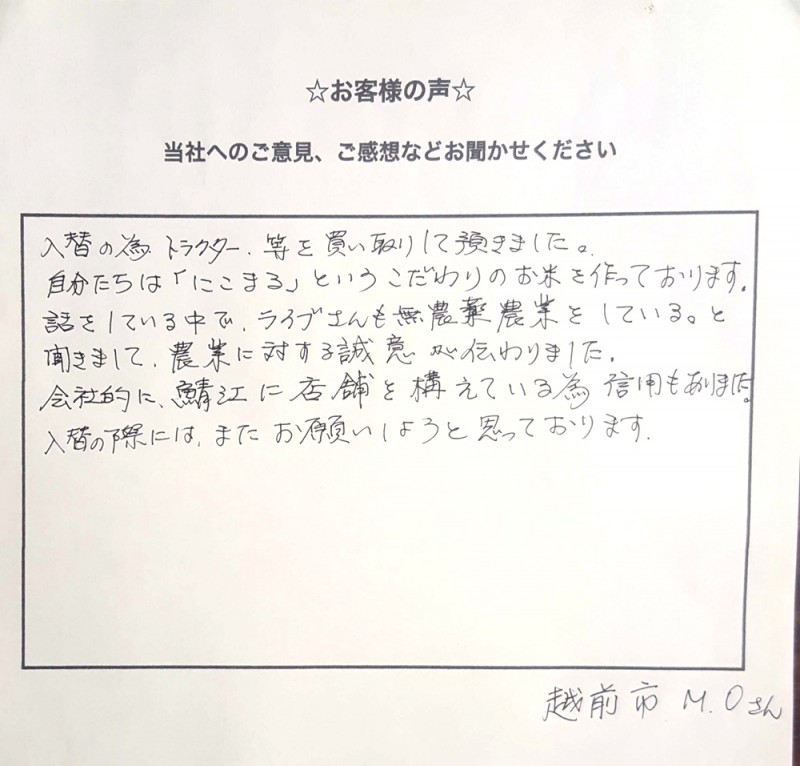 ☆お客様の声☆
当社へのご意見、ご感想などお聞かせください
入替の為 トラクター、等を買い取りして頂きました。
自分たちは「にこまる」というこだわりのお米を作っております。
話をしている中で、ライブさんも無農薬農業をしている。と
聞きまして、農業に対する誠意が伝わりました。
会社的に、鯖江に店舗を構えている為 信用もありました。
入替の際には、またお願いしようと思っております。
越前市 M.Oさん